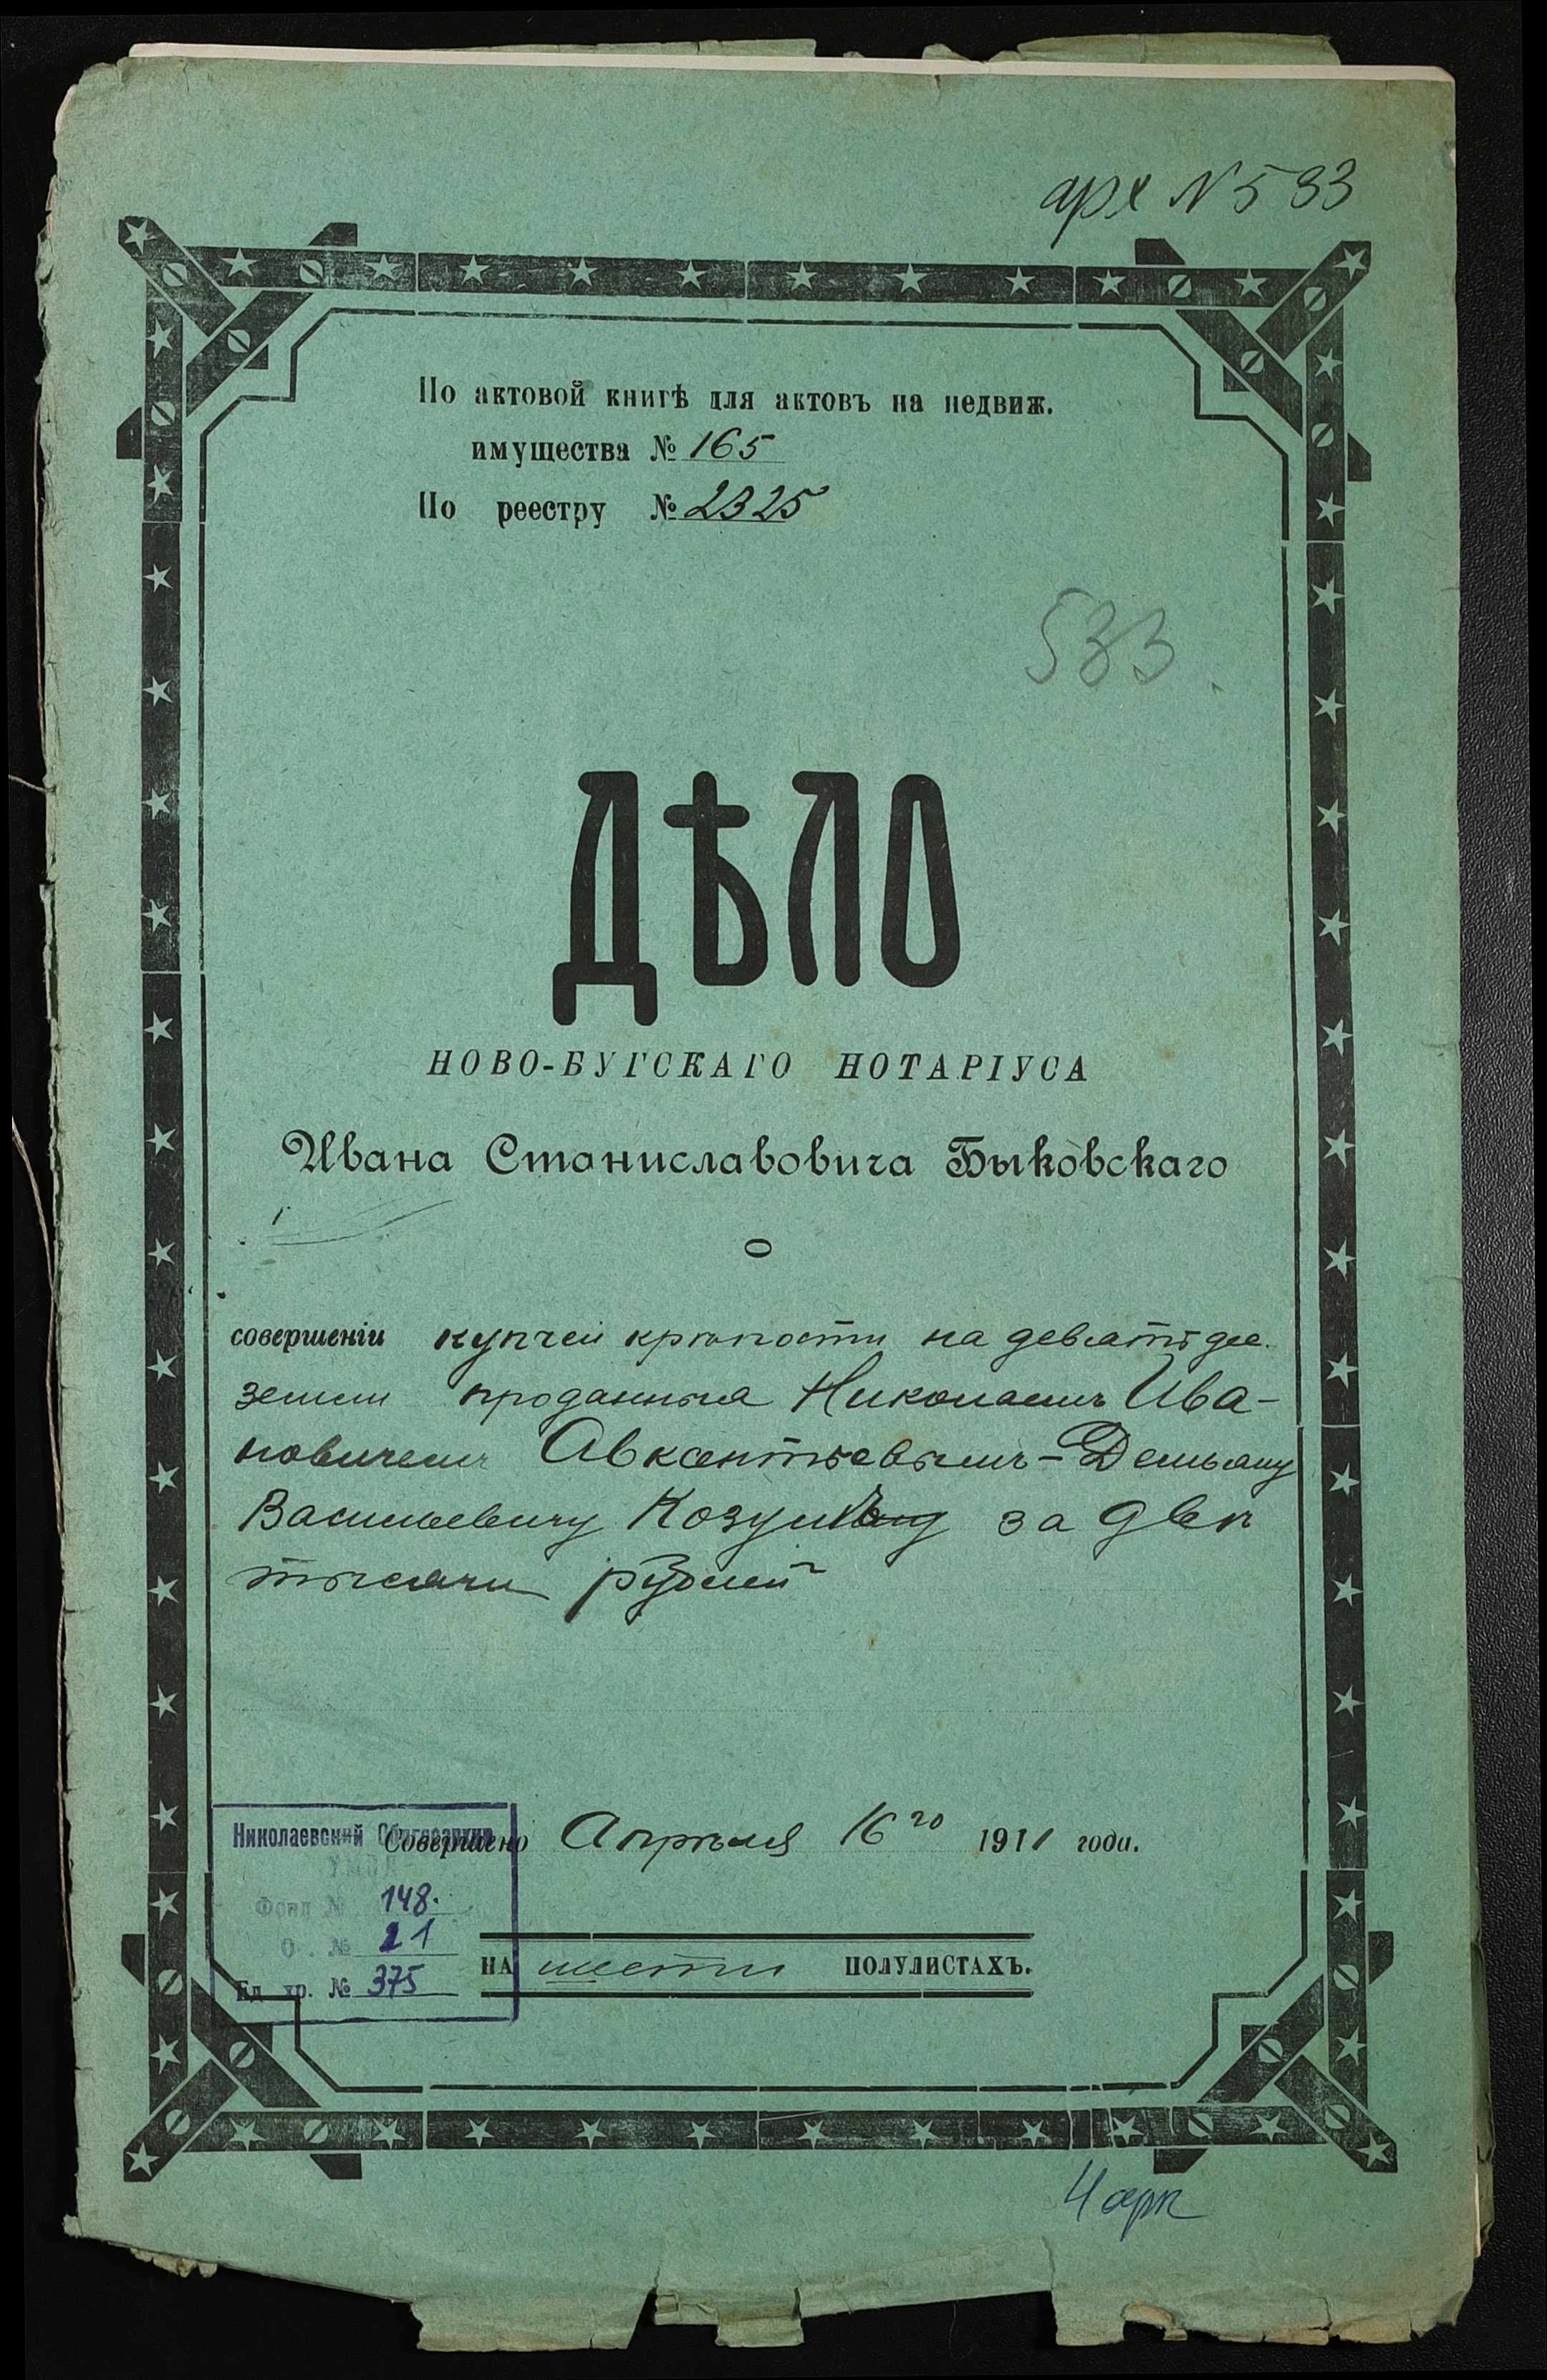 арх N 533
По актовой книгѣ для актовъ на недвиж.
имущества № 165
По реестру № 2325
533
ДѢЛО
НОВО-БУГСКАГО НОТАРІУСА
Ивана Станиславовича Быковскаго
О
совершеніи купчей крѣпости на девять дес.
земли проданныя Николаемъ Ива-
новичемъ Авксентьевымъ - Демьяну
Васильевичу за двѣ
тысячи рублей
Николаевский Облгосархив
Совершено Апрѣля 16го 1911 года.
Фонд № 148.
О. № 21
Ед. хр. № 375
НА шести ПОЛУЛИСТАХЪ.
4 арк